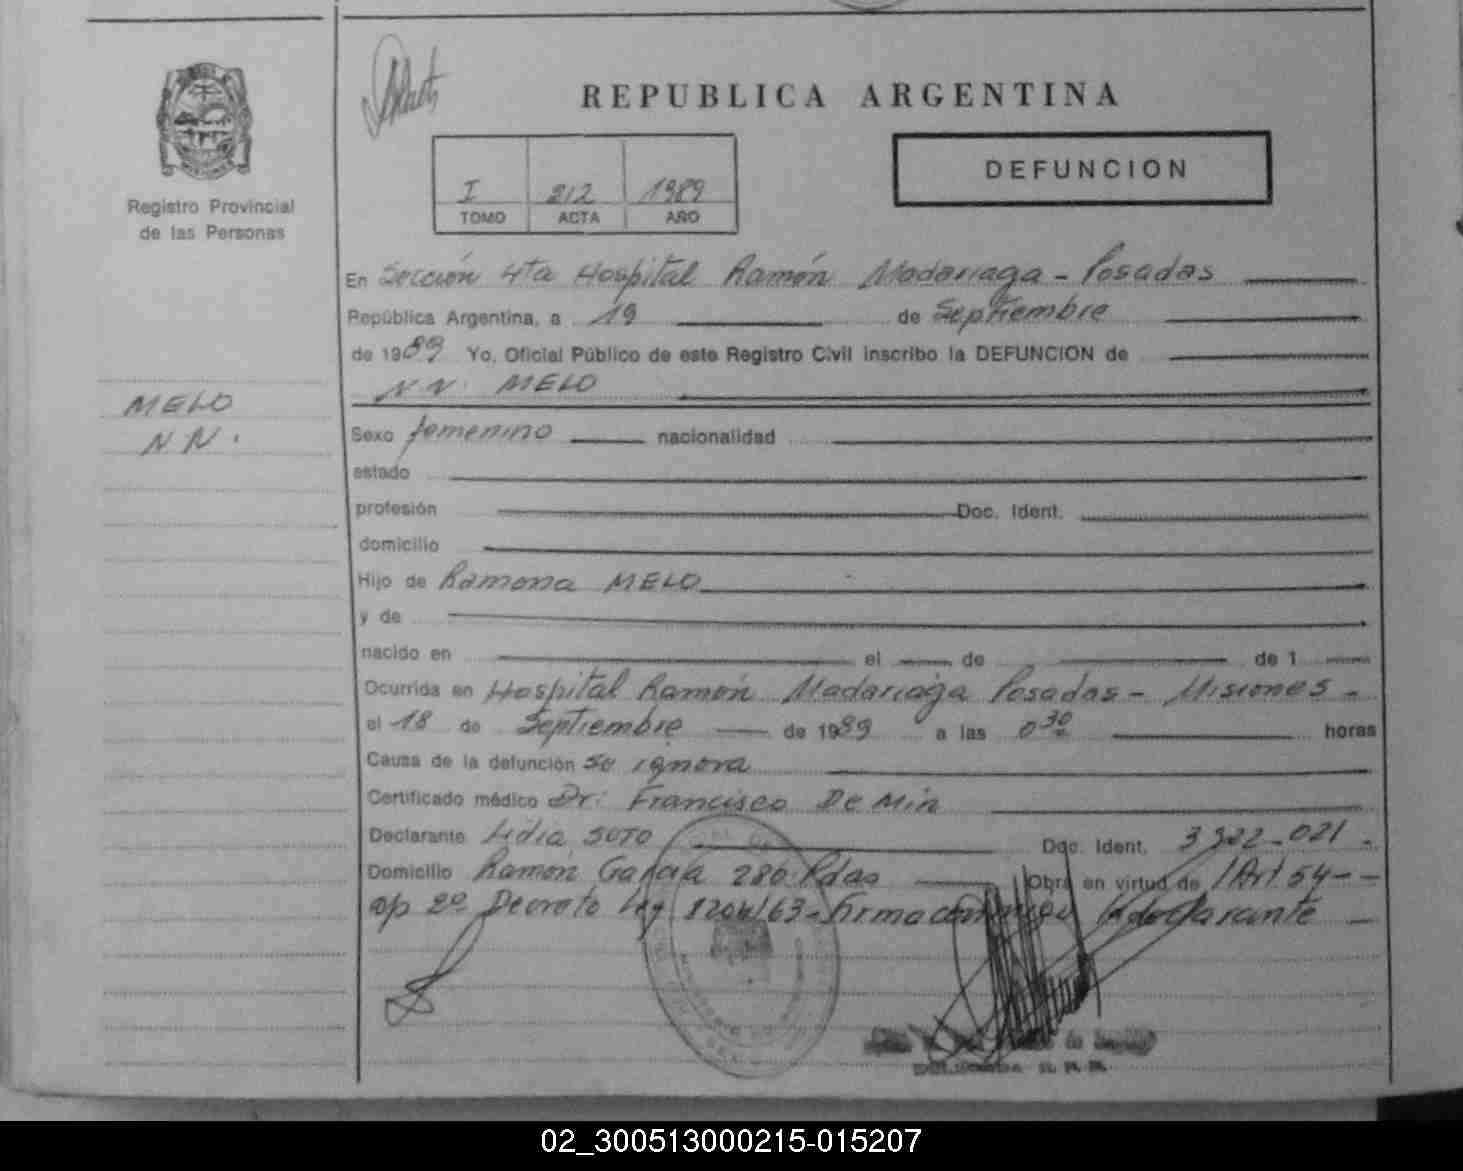 REPUBLICA ARGENTINA
DEFUNCION
I 212 1989
TOMO ACTA AÑO
Registro Provincial
de las Personas
MELO
N N.
En Sección 4ta Hospital Ramón Madariaga - Posadas
República Argentina, a 19 de Septiembre
de 1989 Yo, Oficial Público de este Registro Civil inscribo la DEFUNCION de
N N. MELO
Sexo femenino nacionalidad
estado
profesión Doc. Ident.
domicilio
Hijo de Ramona MELO
y de
nacido en el de de 1
Ocurrida en Hospital Ramón Madariaga Posadas - Misiones -
el 18 de Septiembre de 1989 a las 0 30 horas
Causa de la defunción se ignora
Certificado médico Dr: Francisco De Min
Declarante Lidia SOTO Doc. Ident. 3322-021 -
Domicilio Ramón García 286 Pdas Obra en virtud de /Art 54--
ap 2º Decreto Ley 8204/63 - Firma conmigo la declarante
02_300513000215-015207